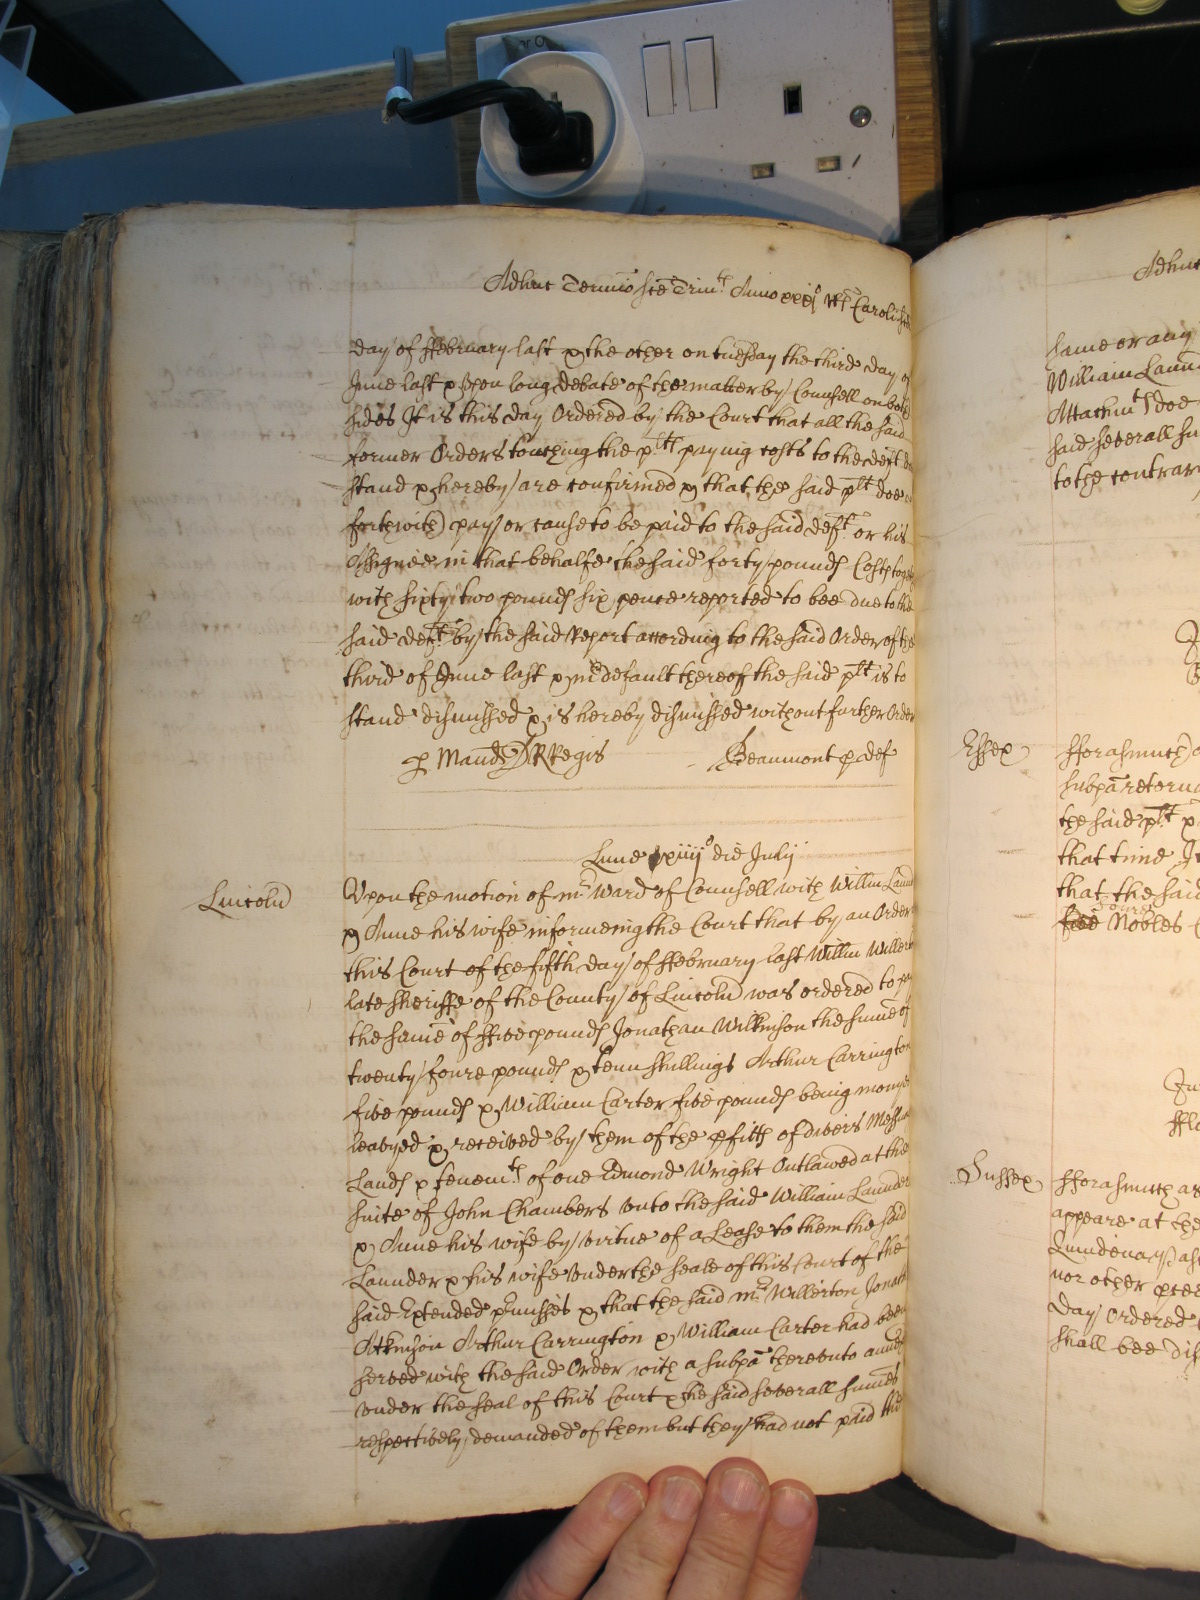 Adhuc Termio Scē Trin^t Anno xxij^o R^s Caroli
day of ffebruary last & the other on tuesday the third day of
June last & Upon long debate of the matter by Counsell on both
sides It is this day Ordered by the Court that all the said
former Orders touching the p^lts paying costs to the deft do
stand & hereby are confirmed & that the said p^lt doe
forthwith pay or cause to be paid to the said def^t or his
Assignee in that behalfe the said forty pounds Costs
with sixty two pounds six pence reported to bee due to the
said def^t by the said Report according to the said Order of the
third of June last & in default thereof the said p^lt is to
stand dismissed & is hereby dismissed without further Order
p Mand RRegis
Beaumont p def
Lune xiiij^o die July
Lincoln
Upon the motion of m^r Ward of Counsell with Willm Laund
& Anne his wife informeing the Court that by an Order
this Court of the fifth day of ffebruary last Willm Willer
late Sheriffe of the County of Lincoln was ordered to pay
the sume of ffive pounds Jonathan Wilkinson the sume of
twenty foure pounds & tenn shillings Arthur Carrington
five pounds & William Carter five pounds being monyes
leavyed & received by them of the p^fitts of divers Messua
Lands & tenem^ts of one Edmond Wright Outlawed at the
suite of John Chambers unto the said William Launder
& Anne his wife by virtue of a Lease to them the said
Launder & his wife under the seale of this Court of the
said Extended p^rmisses & that the said m^r Willerton Jonath
Atkinson Arthur Carrington & William Carter had been
served with the said Order with a subpā thereunto annex
under the seal of this Court & the said severall sumes
respectively demanded of them but they had not paid the
Adhuc
same or any
William Laund
Attachm^t doe
said severall su
to the contrary
Essex
fforasmuch
subpā return
the said p^lt &
that time
that the said
foure
Nobles
Sussex
fforasmuch as
appeare at the
Quindena
nor other
Day Ordered
shall bee dis